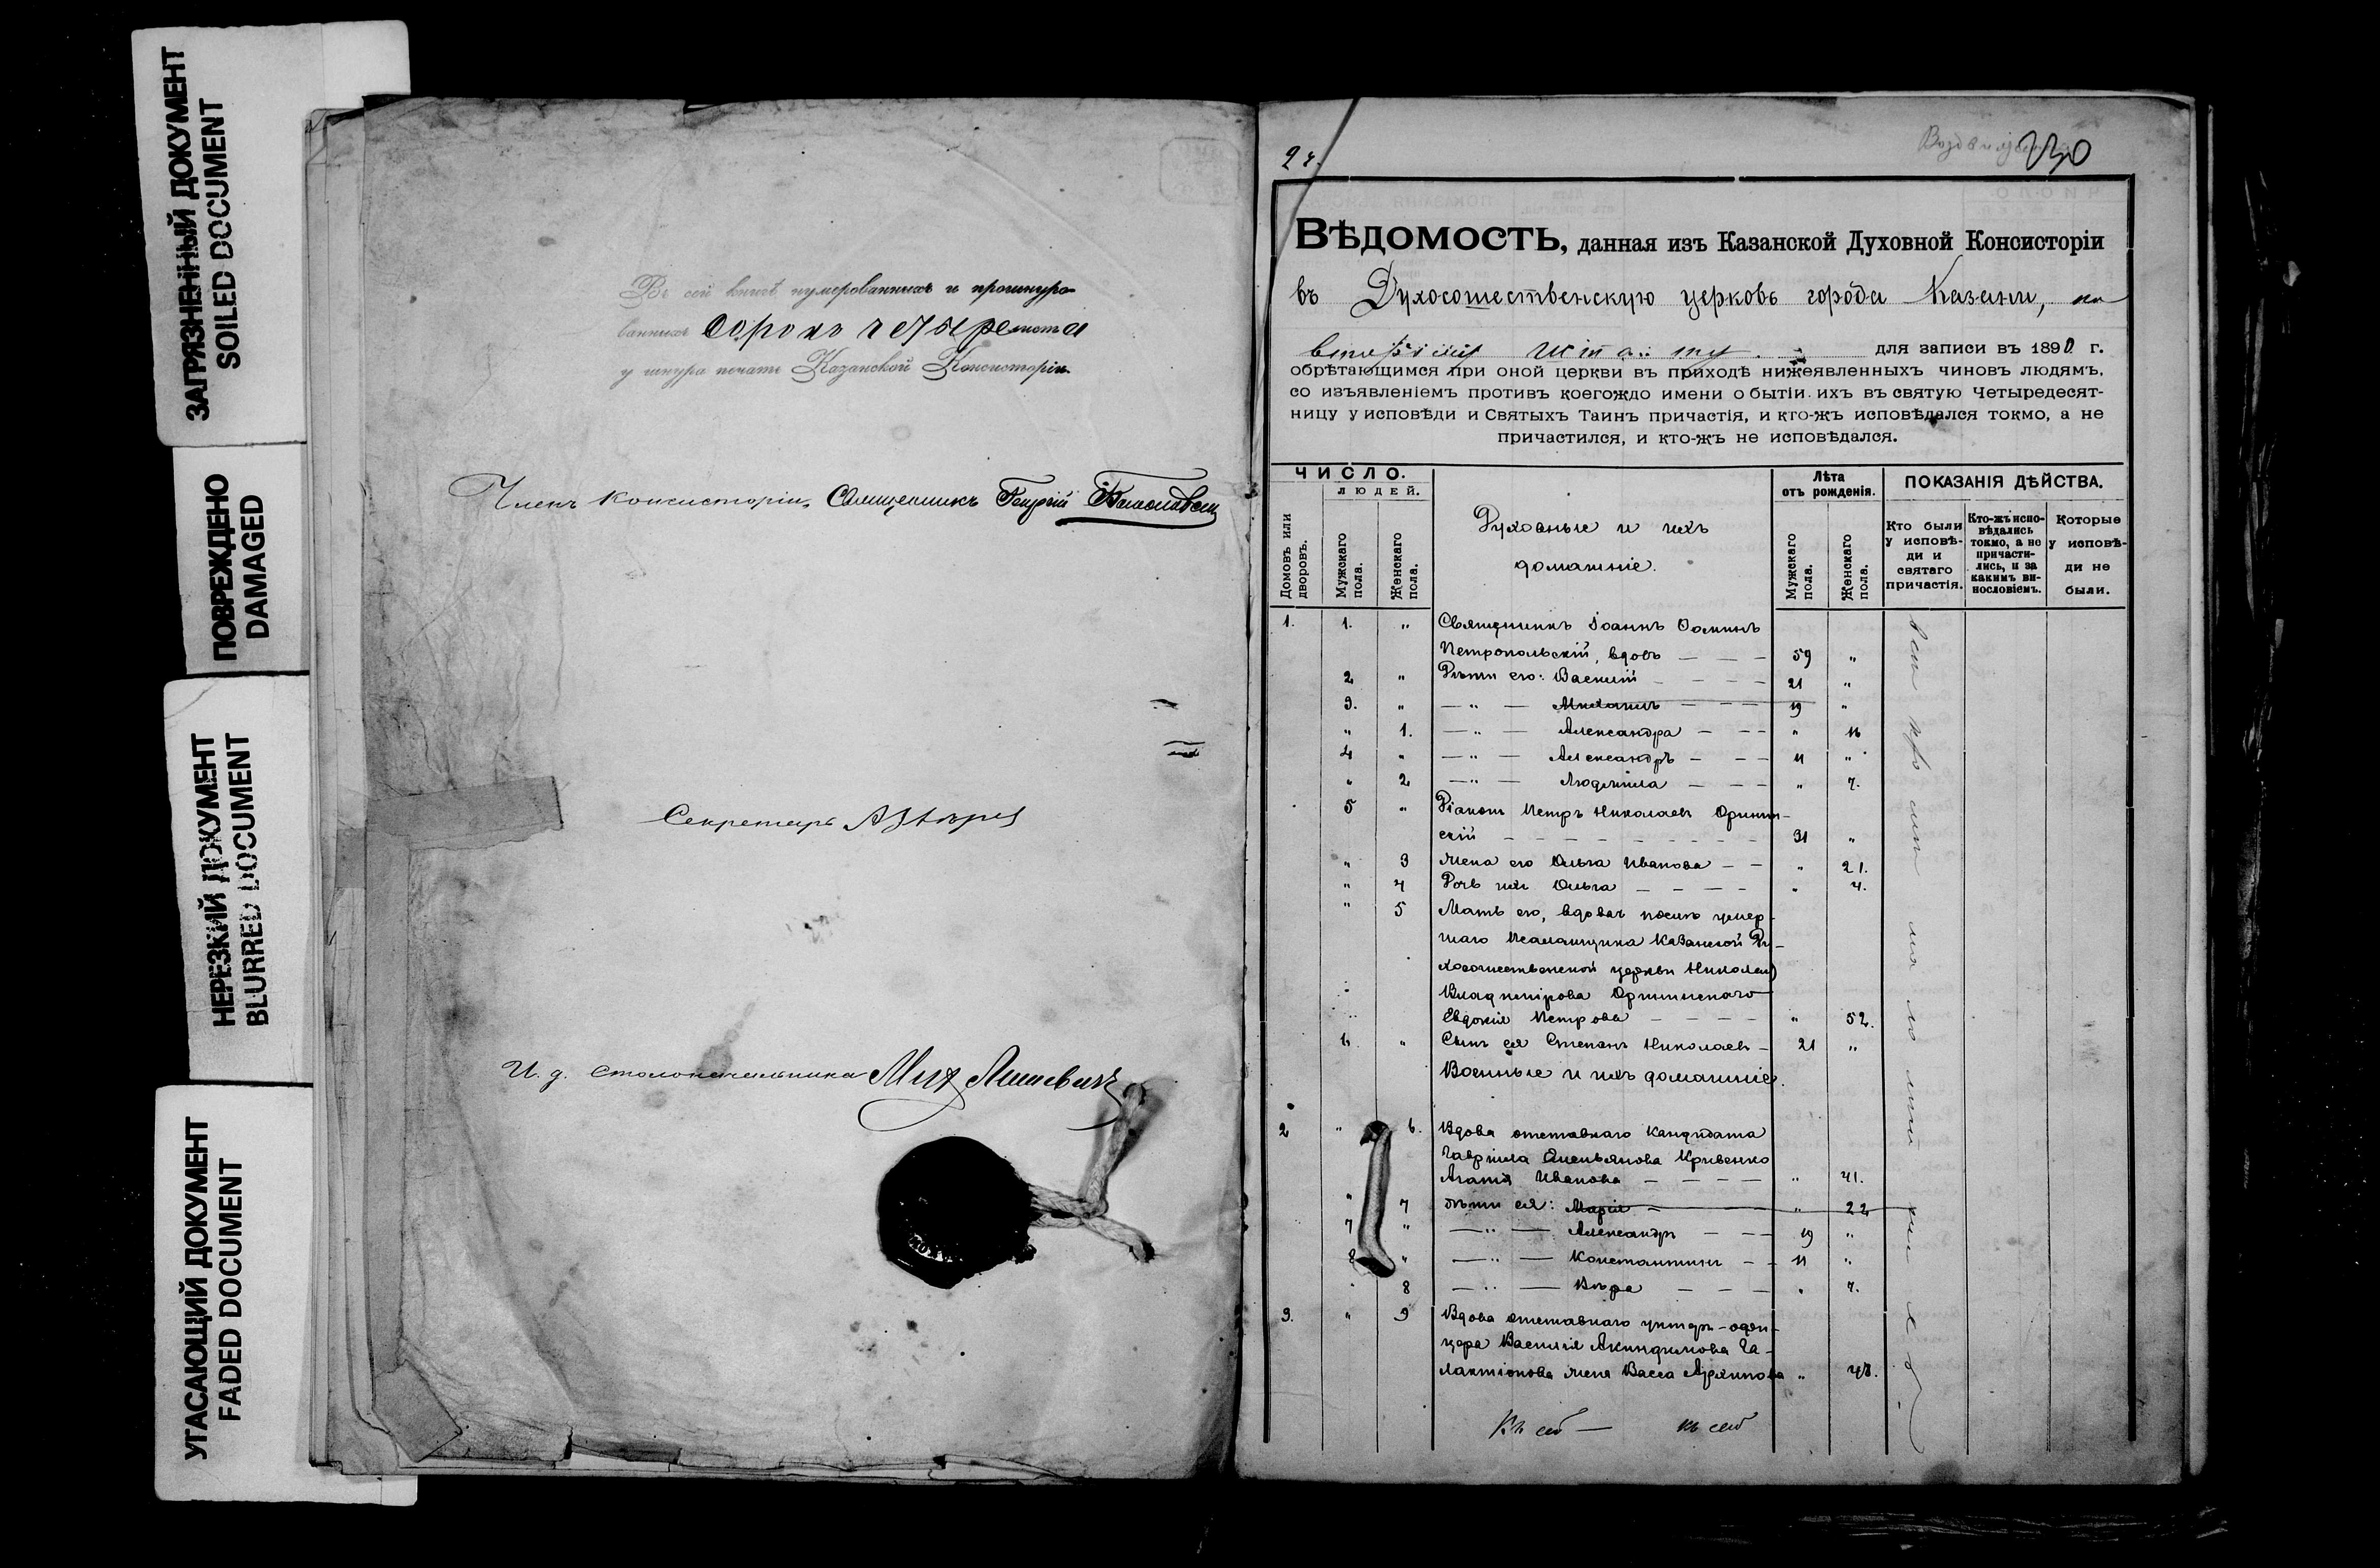 ЗАГРЯЗНЕННЫЙ ДОКУМЕНТ
SOILED DOCUMENT
ПОВРЕЖДЕНО
DAMAGED
НЕРЕЗКИЙ ДОКУМЕНТ
BLURRED DOCUMENT
УГАСАЮЩИЙ ДОКУМЕНТ
FADED DOCUMENT
Въ сей книгѣ нумерованныхъ и прошнуро-
ванныхъ сорокъ четыре листа
у шнура печать Казанской Консисторіи
Членъ Консисторіи, Священникъ Георгій
Секретарь
И. д. Столоначальника Мих
230
ВѢДОМОСТЬ, данная изъ Казанской Духовной Консисторіи
въ Духосошественскую церковь города Казани, по
второму штату для записи въ 1890 г.
обрѣтающимся при оной церкви въ приходѣ нижеявленныхъ чиновъ людямъ,
со изъявленіемъ противъ коегождо имени о бытіи ихъ въ святую Четыредесят-
ницу у исповѣди и Святыхъ Таинъ причастія, и кто-жъ исповѣдался токмо, а не
причастился, и кто-жъ не исповѣдался.
ЧИСЛО.
людей.
Домовъ или дворовъ.
Мужскаго пола.
Женскаго пола.
Духовные и ихъ
домашніе.
Лѣта
отъ рожденія.
Мужскаго пола.
Женскаго пола.
ПОКАЗАНІЯ ДѢЙСТВА.
Кто были у исповѣ-ди и святаго причастія.
Кто-жъ испо-вѣдались токмо, а не причасти-лись, и за какимъ ви-нословіемъ.
Которые у исповѣ-ди не были.
1. 1. " Священникъ Іоаннъ Ѳоминъ
Петропольскій, вдовъ — — — 59 "
2 " Дѣти его: Василій — — — — 21 "
3. " — " — Михаилъ — — — 19 "
" 1. — " — Александра — — — " 16
4 " — " — Александръ — — — 11 "
" 2 — " — Людмила — — — " 7.
5 " Діаконъ Петръ Николаевъ Оринин-
скій — — — — — — — — 31 "
" 3 Жена его Ольга Иванова — — " 21.
" 4 Дочь ихъ Ольга — — — — " 4.
" 5 Мать его, вдовая послѣ умер-
шаго Псаломщика Казанской Ду-
хосошественской церкви Николая
Владимірова Орининскаго
Евдокія Петрова — — — — " 52.
6 " Сынъ ея Степанъ Николаевъ — 21 "
Военные и ихъ домашніе.
2 " 6. Вдова отставнаго кандидата
Гавріила Емельянова Кривенко
Агапія Иванова — — — — " 41.
" 7 Дѣти ея: Марія — " 22
7 " — " — Александръ — — 19 "
8 " — " — Константинъ — — 11 "
" 8 — " — Вѣра — — — " 7.
3. " 9 Вдова отставнаго унтеръ-офи-
цера Василія Акиндинова Га-
лактіонова жена Васса Архипова " 48.